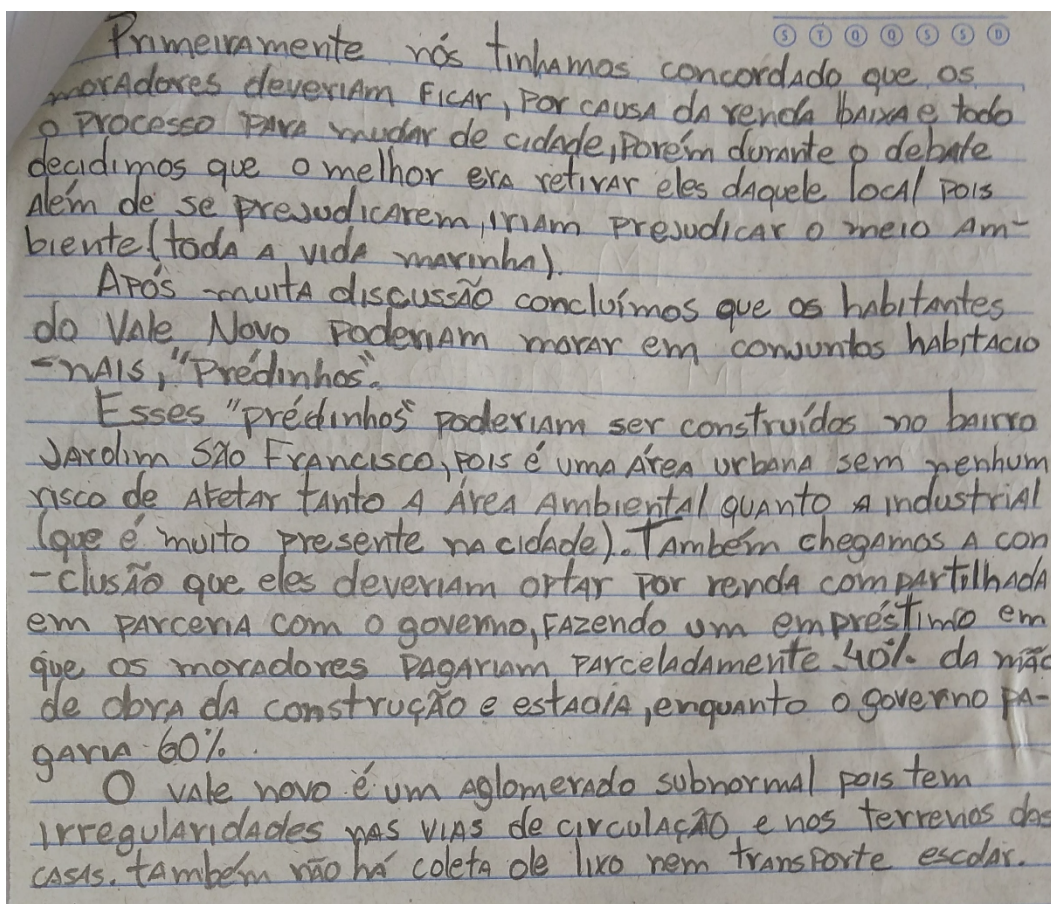 S T Q Q S S D
Primeiramente nós tinhamos concordado que os
moradores deveriam ficar, por causa da renda baixa e todo
o processo para mudar de cidade, porém durante o debate
decidimos que o melhor era retirar eles daquele local pois
além de se prejudicarem, iriam prejudicar o meio am-
biente (toda a vida marinha).
Após muita discussão concluímos que os habitantes
do Vale Novo poderiam morar em conjuntos habitacio
-nais, "Prédinhos".
Esses "prédinhos" poderiam ser construídos no bairro
Jardim São Francisco, pois é uma área urbana sem nenhum
risco de afetar tanto a área ambiental quanto a industrial
(que é muito presente na cidade). Também chegamos a con
-clusão que eles deveriam optar por renda compartilhada
em parceria com o governo, fazendo um empréstimo em
que os moradores pagariam parceladamente 40% da mão
de obra da construção e estadia, enquanto o governo pa-
garia 60%.
O vale novo é um aglomerado subnormal pois tem
irregularidades nas vias de circulação e nos terrenos das
casas. também não há coleta de lixo nem transporte escolar.